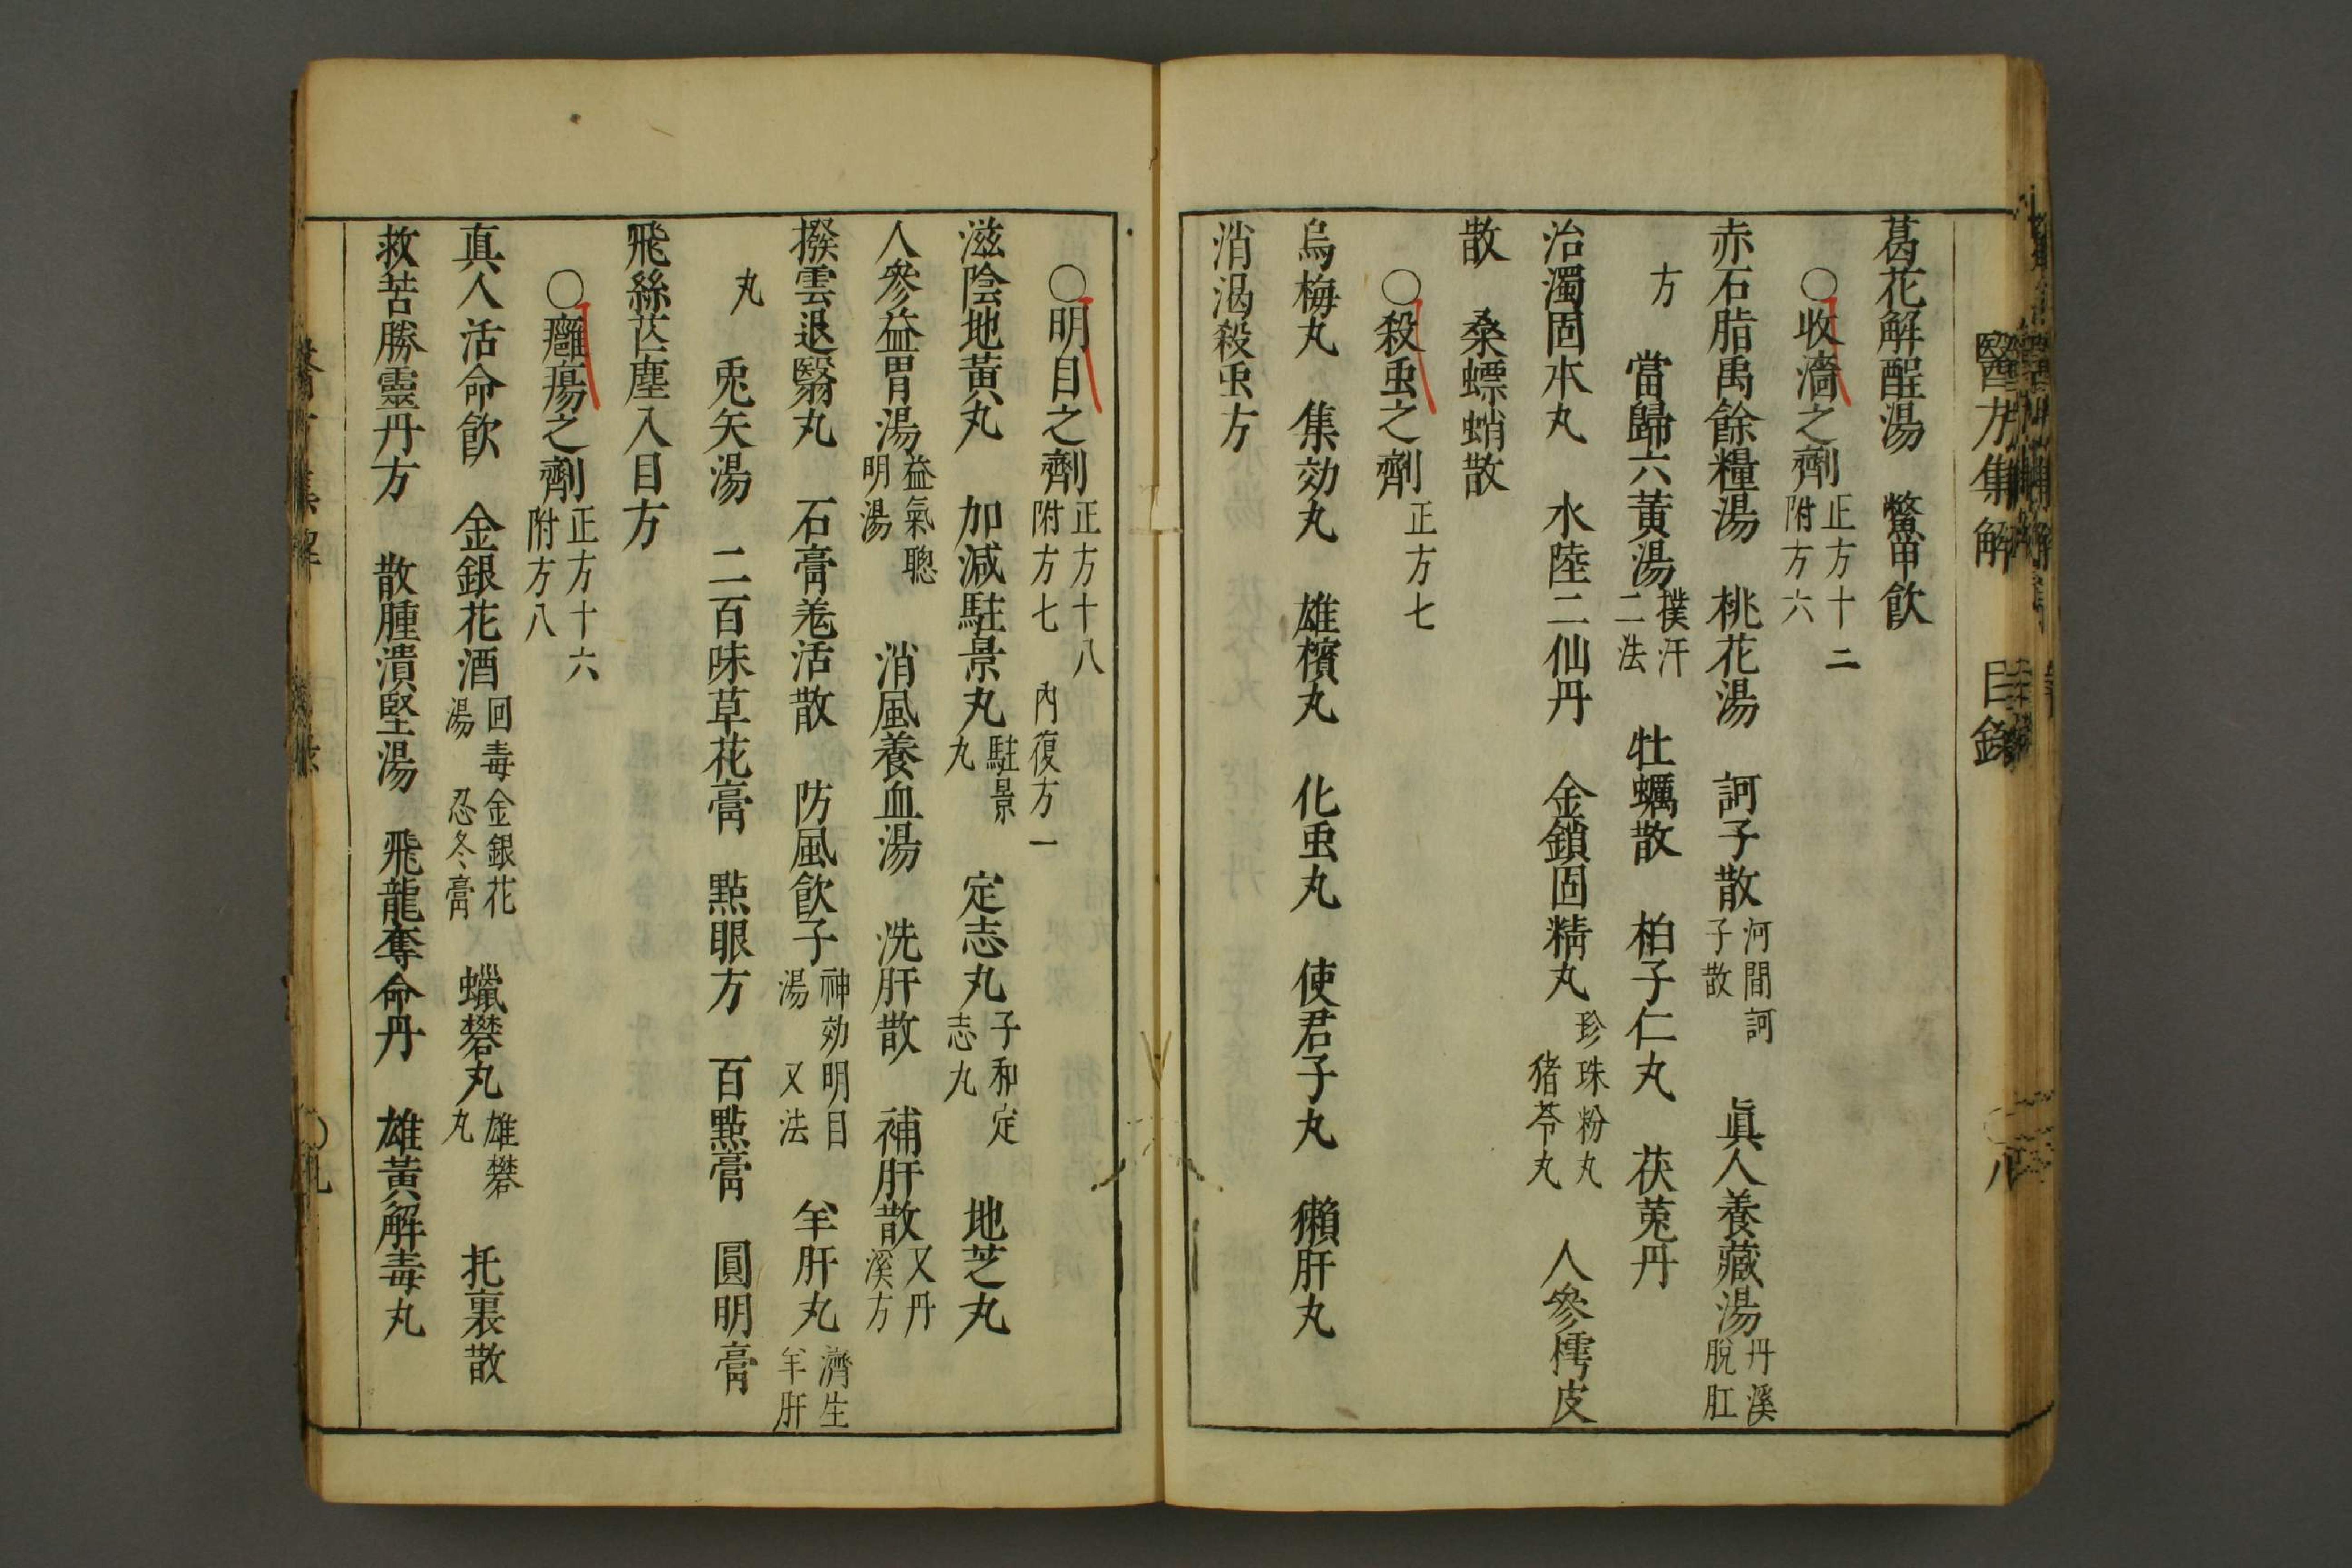 醫方集解　目錄　八
葛花解酲湯　鱉甲飲
○收濇之劑 正方十二 附方六
赤石脂禹餘糧湯　桃花湯　訶子散 河間訶子散　眞人養藏湯 丹溪脫肛
方　當歸六黃湯 撲汗二法　牡蠣散　柏子仁丸　茯菟丹
治濁固本丸　水陸二仙丹　金鎖固精丸 珍珠粉丸 猪苓丸　人參樗皮
散　桑螵蛸散
○殺虫之劑 正方七
烏梅丸　集効丸　雄檳丸　化虫丸　使君子丸　獺肝丸
消渴殺虫方
○明目之劑 正方十八 附方七 內復方一
滋陰地黃丸　加減駐景丸 駐景丸　定志丸 子和定志丸　地芝丸
人參益胃湯 益氣聰明湯　消風養血湯　洗肝散　補肝散 又丹溪方
撥雲退翳丸　石膏羗活散　防風飲子 神効明目湯 又法　羊肝丸 濟生羊肝
丸　兎矢湯　二百味草花膏　點眼方　百點膏　圓明膏
飛絲芒塵入目方
○癰瘍之劑 正方十六 附方八
真人活命飲　金銀花酒 回毒金銀花湯 忍冬膏　蠟礬丸 雄礬丸　托裏散
救苦勝靈丹方　散腫潰堅湯　飛龍奪命丹　雄黃解毒丸